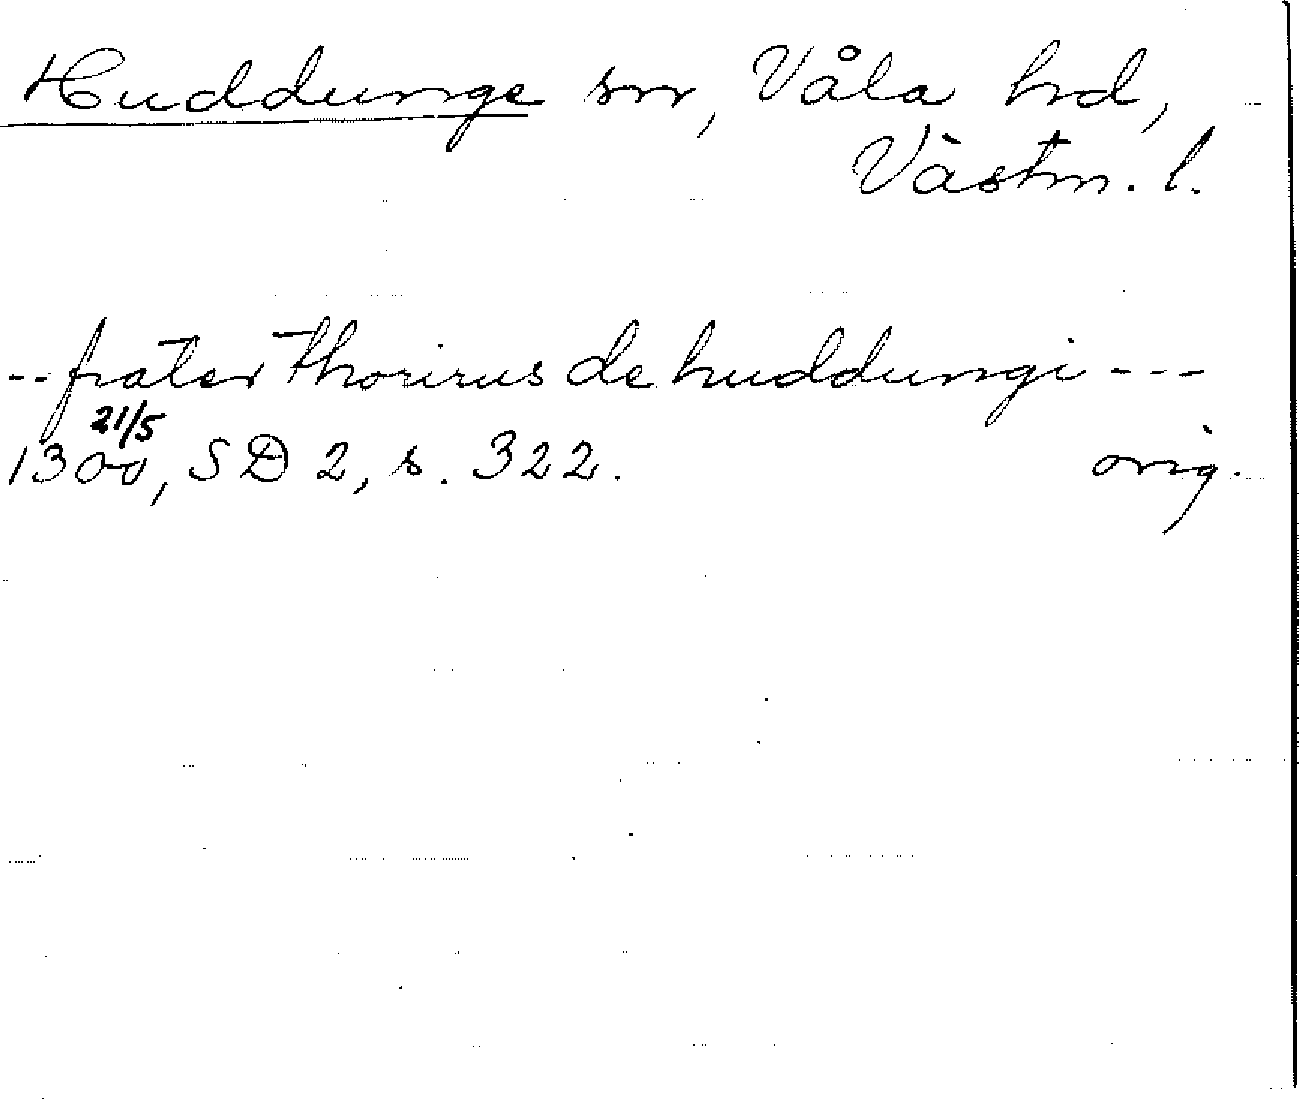 Huddunge sn, Våla hd,
Västm. l.
-- frater thorirus de huddungi ---
21/5
1300, SD 2, s. 322. orig.